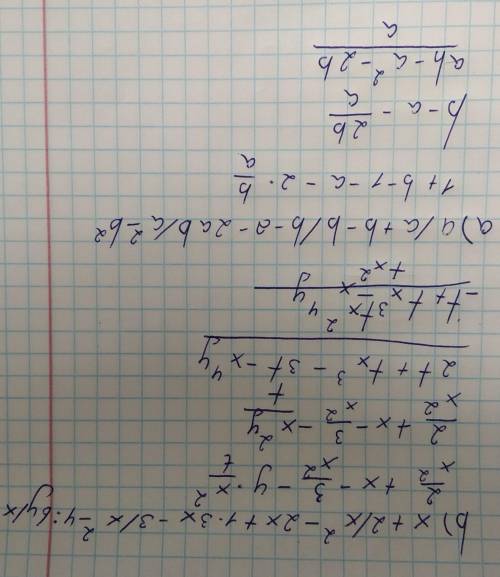 b) x+2/x²-2x+1·3x-3/x²-4:6y/x
2/x² +x - 3/x² - y·x²/t
2/x² +x - 3/x² - x²y/t
2t+tx³-3t-x⁴y
a) a/a+b-b/b-a-2ab/a²-b²
1+b-1-a-2·b/a
b-a-2b/a
ab-a²-2b
a